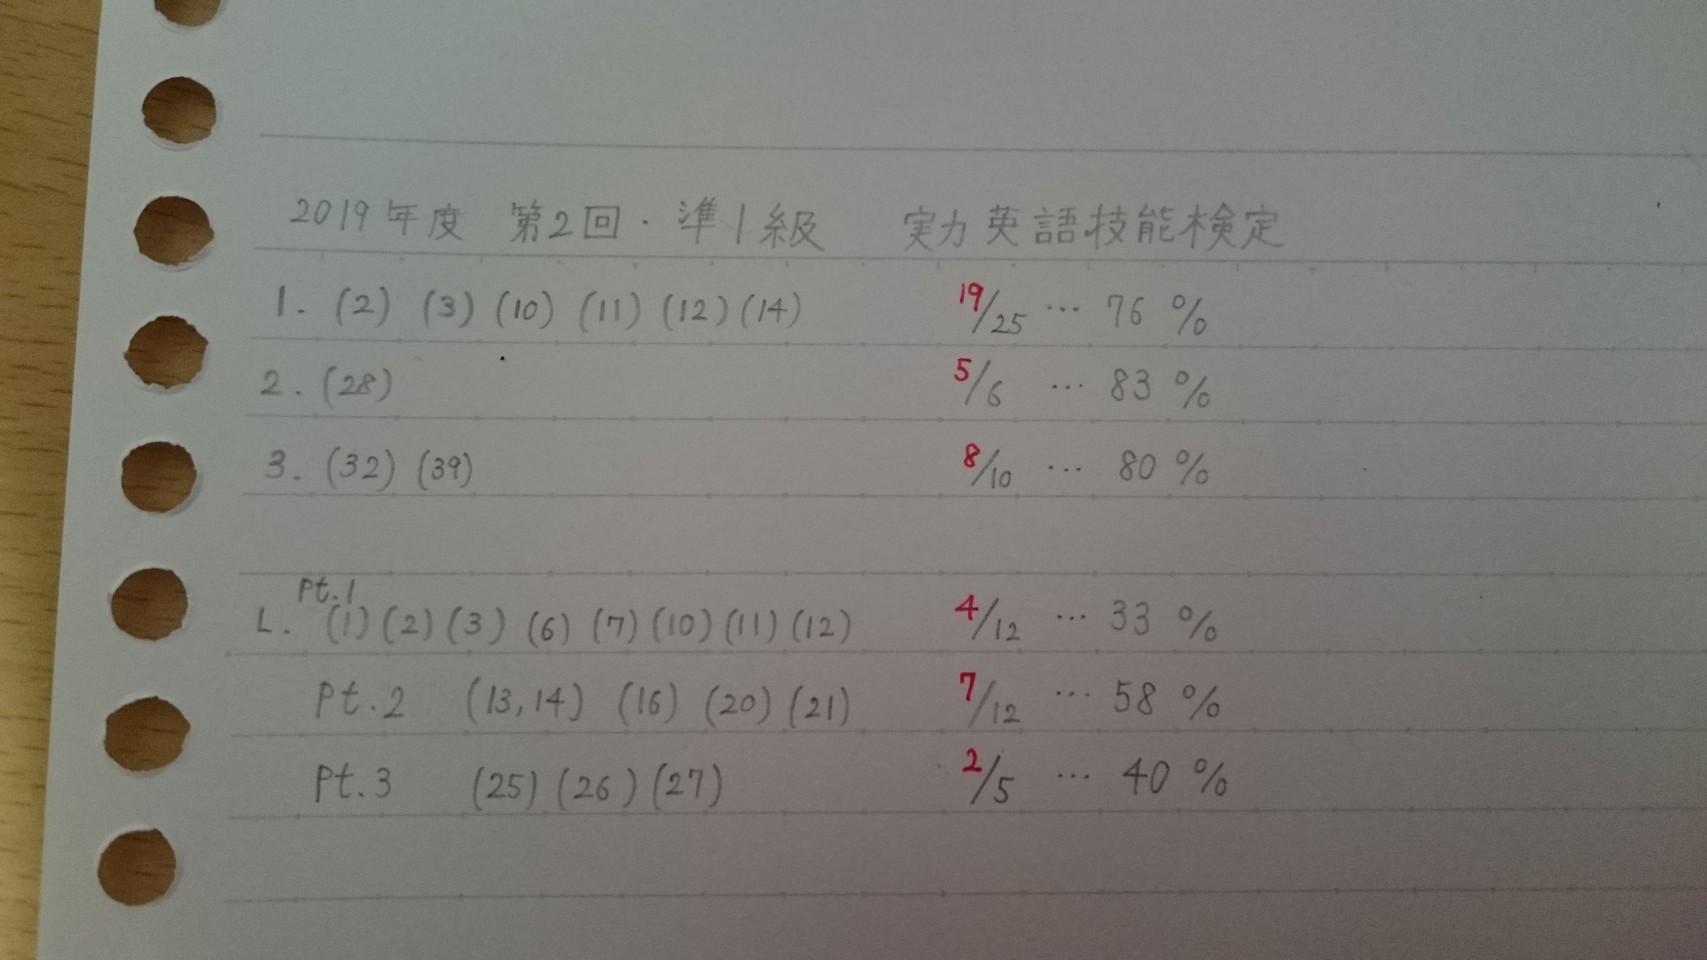 2019年度 第2回・準1級 実力英語技能検定
1. (2) (3) (10) (11) (12) (14) 19/25 … 76 %
2. (28) 5/6 … 83 %
3. (32) (39) 8/10 … 80 %
Pt.1
L. (1) (2) (3) (6) (7) (10) (11) (12) 4/12 … 33 %
Pt.2 (13,14) (16) (20) (21) 7/12 … 58 %
Pt.3 (25) (26) (27) 2/5 … 40 %